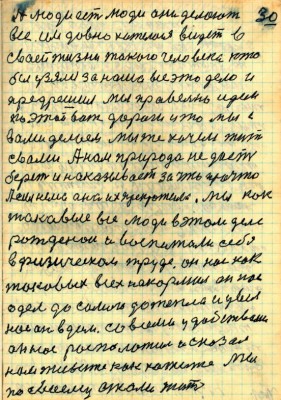 30
А люди ест люди они делают
все им довно хотелося видет в
своей жизни такого человека кто
бы узялся за наше все это дело и
предрешил мы правельно идем
по этой вот дороги что мы с
вами делаем мы же хочем жит
с вами А нам природа не дает
берет и наказывает за то что
мы как
таковые все люди в этом деле
рожденои и воспитали себя
в физическом труде. он нас как
таковых всех накормил он нас
одел до самого дотепла и увел
нас он в дом. со всеми удобствами
он нас росположил и сказал
нам живите как хочете Мы
по своему стали жит